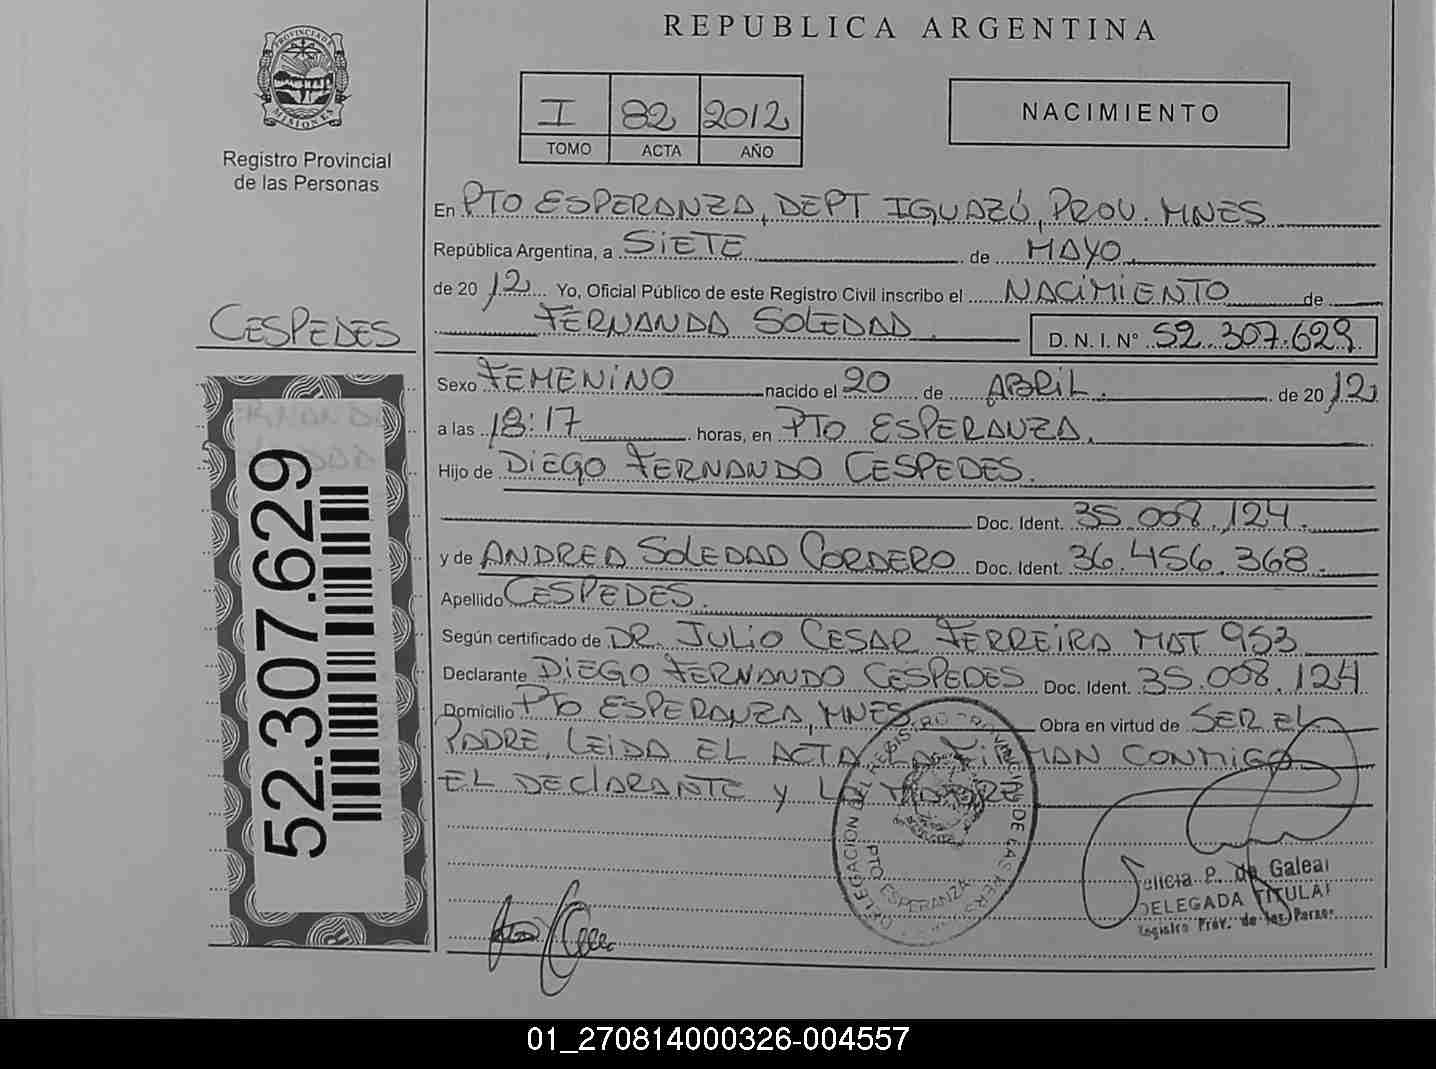 REPUBLICA ARGENTINA
PROVINCIA DE MISIONES
Registro Provincial
de las Personas
I 82 2012
TOMO ACTA AÑO
NACIMIENTO
En PTO ESPERANZA, DEPT IGUAZÚ, PROV. MNES
República Argentina, a SIETE de MAYO
de 2012 Yo, Oficial Público de este Registro Civil inscribo el NACIMIENTO de
FERNANDA SOLEDAD. D. N. I. Nº 52.307.629
CESPEDES
Sexo FEMENINO nacido el 20 de ABRIL. de 2012
a las 18:17 horas, en PTO ESPERANZA.
Hijo de DIEGO FERNANDO CESPEDES.
Doc. Ident. 35.008.124.
y de ANDREA SOLEDAD CORDERO Doc. Ident. 36.456.368.
Apellido CESPEDES.
Según certificado de DR. JULIO CESAR FERREIRA MAT 953
Declarante DIEGO FERNANDO CESPEDES Doc. Ident. 35.008.124
Domicilio PTO ESPERANZA, MNES Obra en virtud de SER EL
PADRE, LEIDA EL ACTA LA FIRMAN CONMIGO
EL DECLARANTE Y LA MADRE
52.307.629
DELEGACION DEL REGISTRO PROVINCIAL DE LAS PERS
PTO ESPERANZA
P. de Galea
DELEGADA TITULAR
Registro Prov. de las Person
01_270814000326-004557